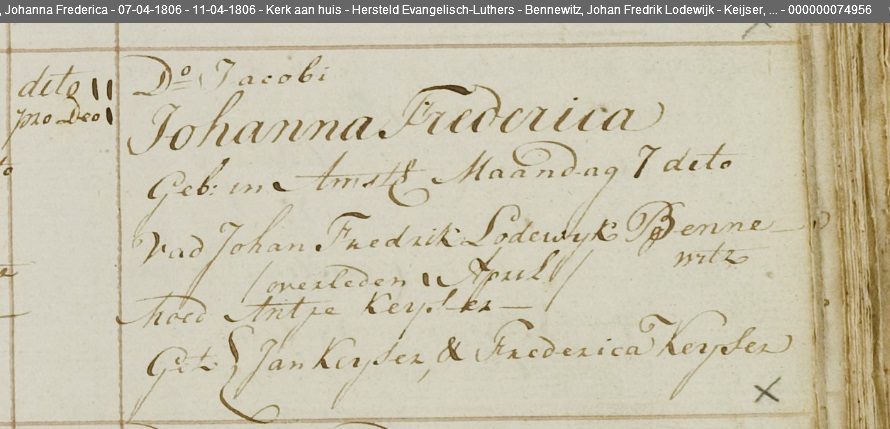 , Johanna Frederica - 07-04-1806 - 11-04-1806 - Kerk aan huis - Hersteld Evangelisch-Luthers - Bennewitz, Johan Fredrik Lodewijk - Keijser, ... - 000000074956
dito 11
pro Deo
Do Jacobi
Johanna Frederica
Geb: in Amstd Maandag 7 dito
Vad Johan Fredrik Lodewyk Benne-
witz
/overleden 1 April/
Moed Antje Keyser
Get { Jan Keyser, & Frederica Keyser
X